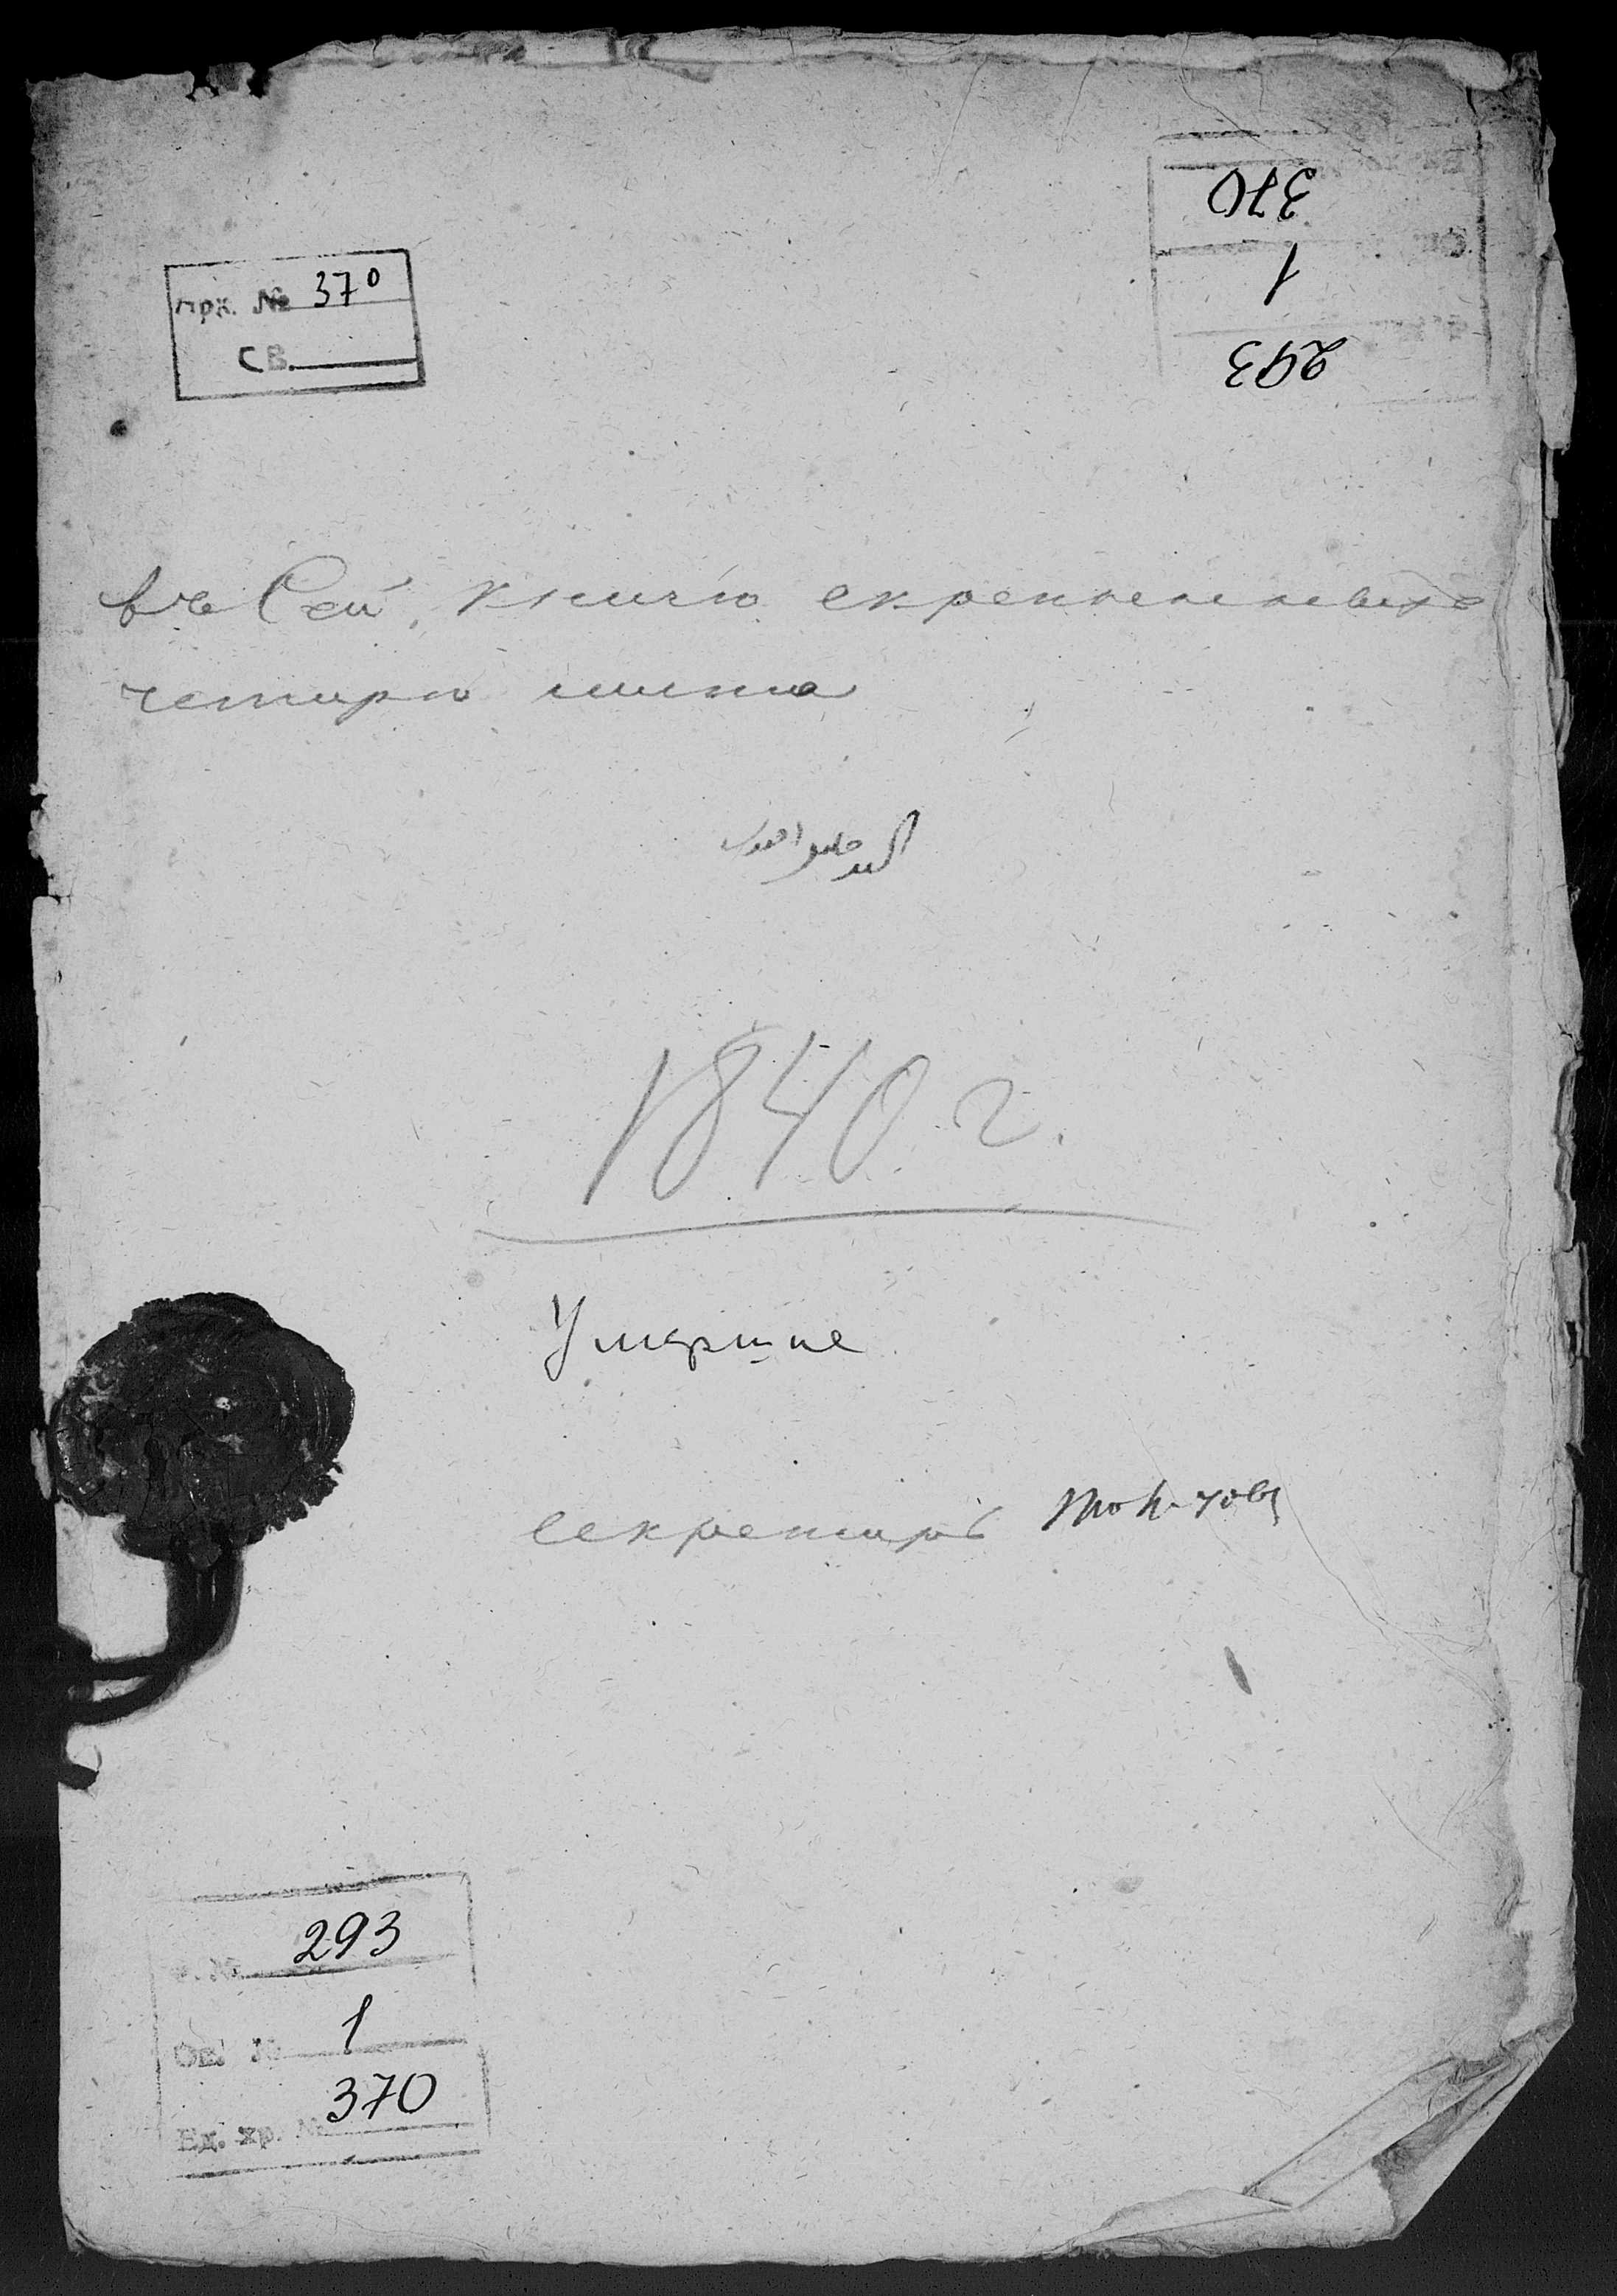 370
1
293
Арх. № 370
СВ.
въ Сей книги скрепленныхъ
четыри листа
1840 г.
Умершие
секретарь
Ф. № 293
Оп. № 1
Ед. хр. № 370